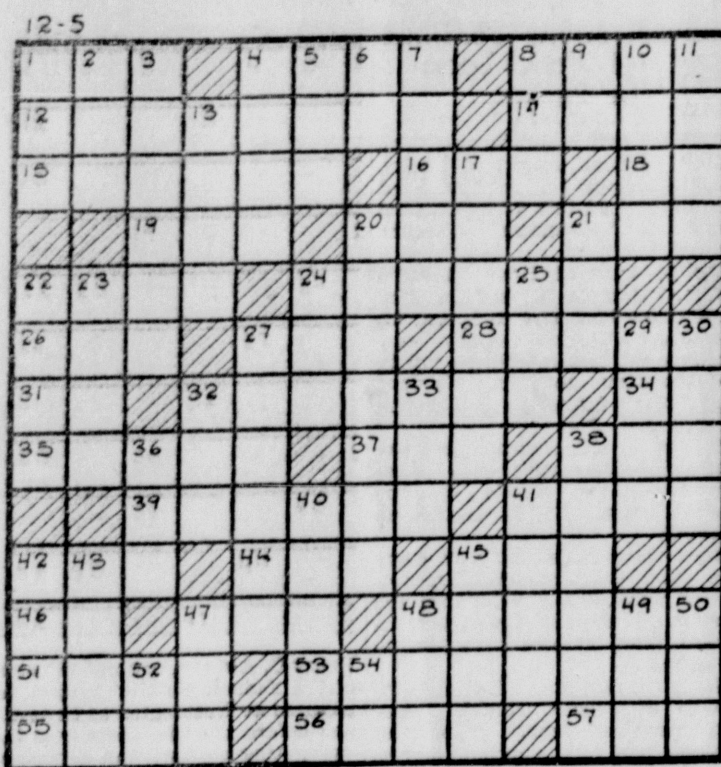 12-5
1 2 3 4 5 6 7 8 9 10 11
12 13 14
15 16 17 18
19 20 21
22 23 24 25
26 27 28 29 30
31 32 33 34
35 36 37 38
39 40 41
42 43 44 45
46 47 48 49 50
51 52 53 54
55 56 57